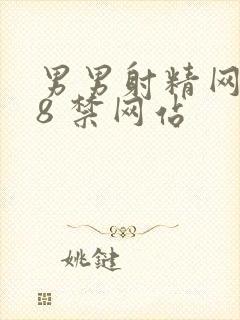 男男射精网
8 禁网佔
姚鍵